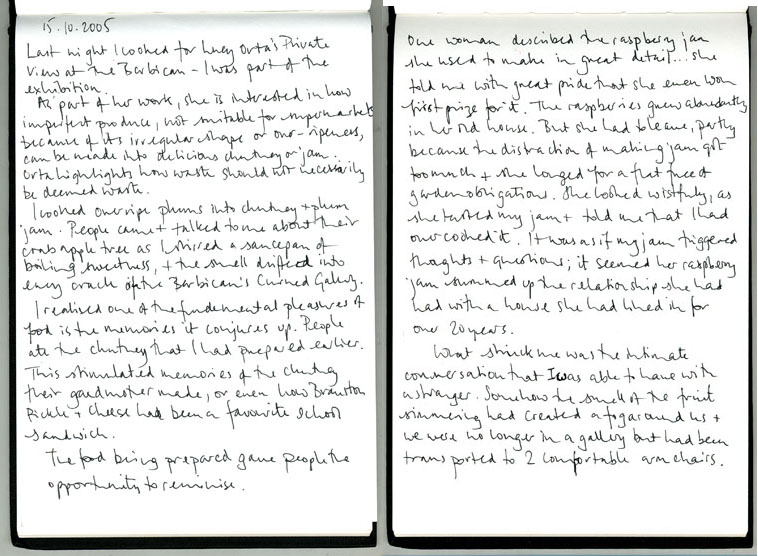 15.10.2005
Last night I cooked for Lucy Orta's Private
View at the Barbican - I was part of the
exhibition.
As part of her work, she is interested in how
imperfect produce, not suitable for supermarkets
because of its irregular shape or over-ripeness,
can be made into delicious chutney or jam.
Orta highlights how waste should not necessarily
be deemed waste.
I cooked overripe plums into chutney + plum
jam. People came + talked to me about their
crab apple tree as I stirred a saucepan of
boiling sweetness, + the smell drifted into
every crack of the Barbican's Curved Gallery.
I realised one of the fundemental pleasures of
food is the memories it conjures up. People
ate the chutney that I had prepared earlier.
This stimulated memories of the chutney
their grandmother made, or even how Branston
Pickle + Cheese had been a favourite school
sandwich.
The food being prepared gave people the
opportunity to reminise.
One woman described the raspberry jam
she used to make in great detail... she
told me with great pride that she even won
first prize for it. The raspberries grew abundantly
in her old house. But she had to leave, partly
because the distraction of making jam got
too much + she longed for a flat free of
garden obligations. She looked wistfully, as
she tasted my jam + told me that I had
overcooked it. It was as if my jam triggered
thoughts + questions; it seemed her raspberry
jam summed up the relationship she had
had with a house she had lived in for
over 20 years.
What struck me was the intimate
conversation that I was able to have with
a stranger. Somehow the smell of the fruit
simmering had created a fog around us +
we were no longer in a gallery but had been
transported to 2 comfortable arm chairs.